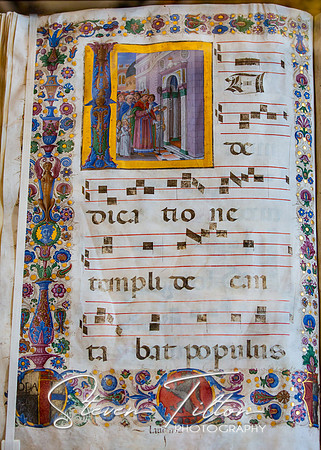 I N
de
dica tio ne
templi de can
ta bat populus
Steven Tilton
PHOTOGRAPHY